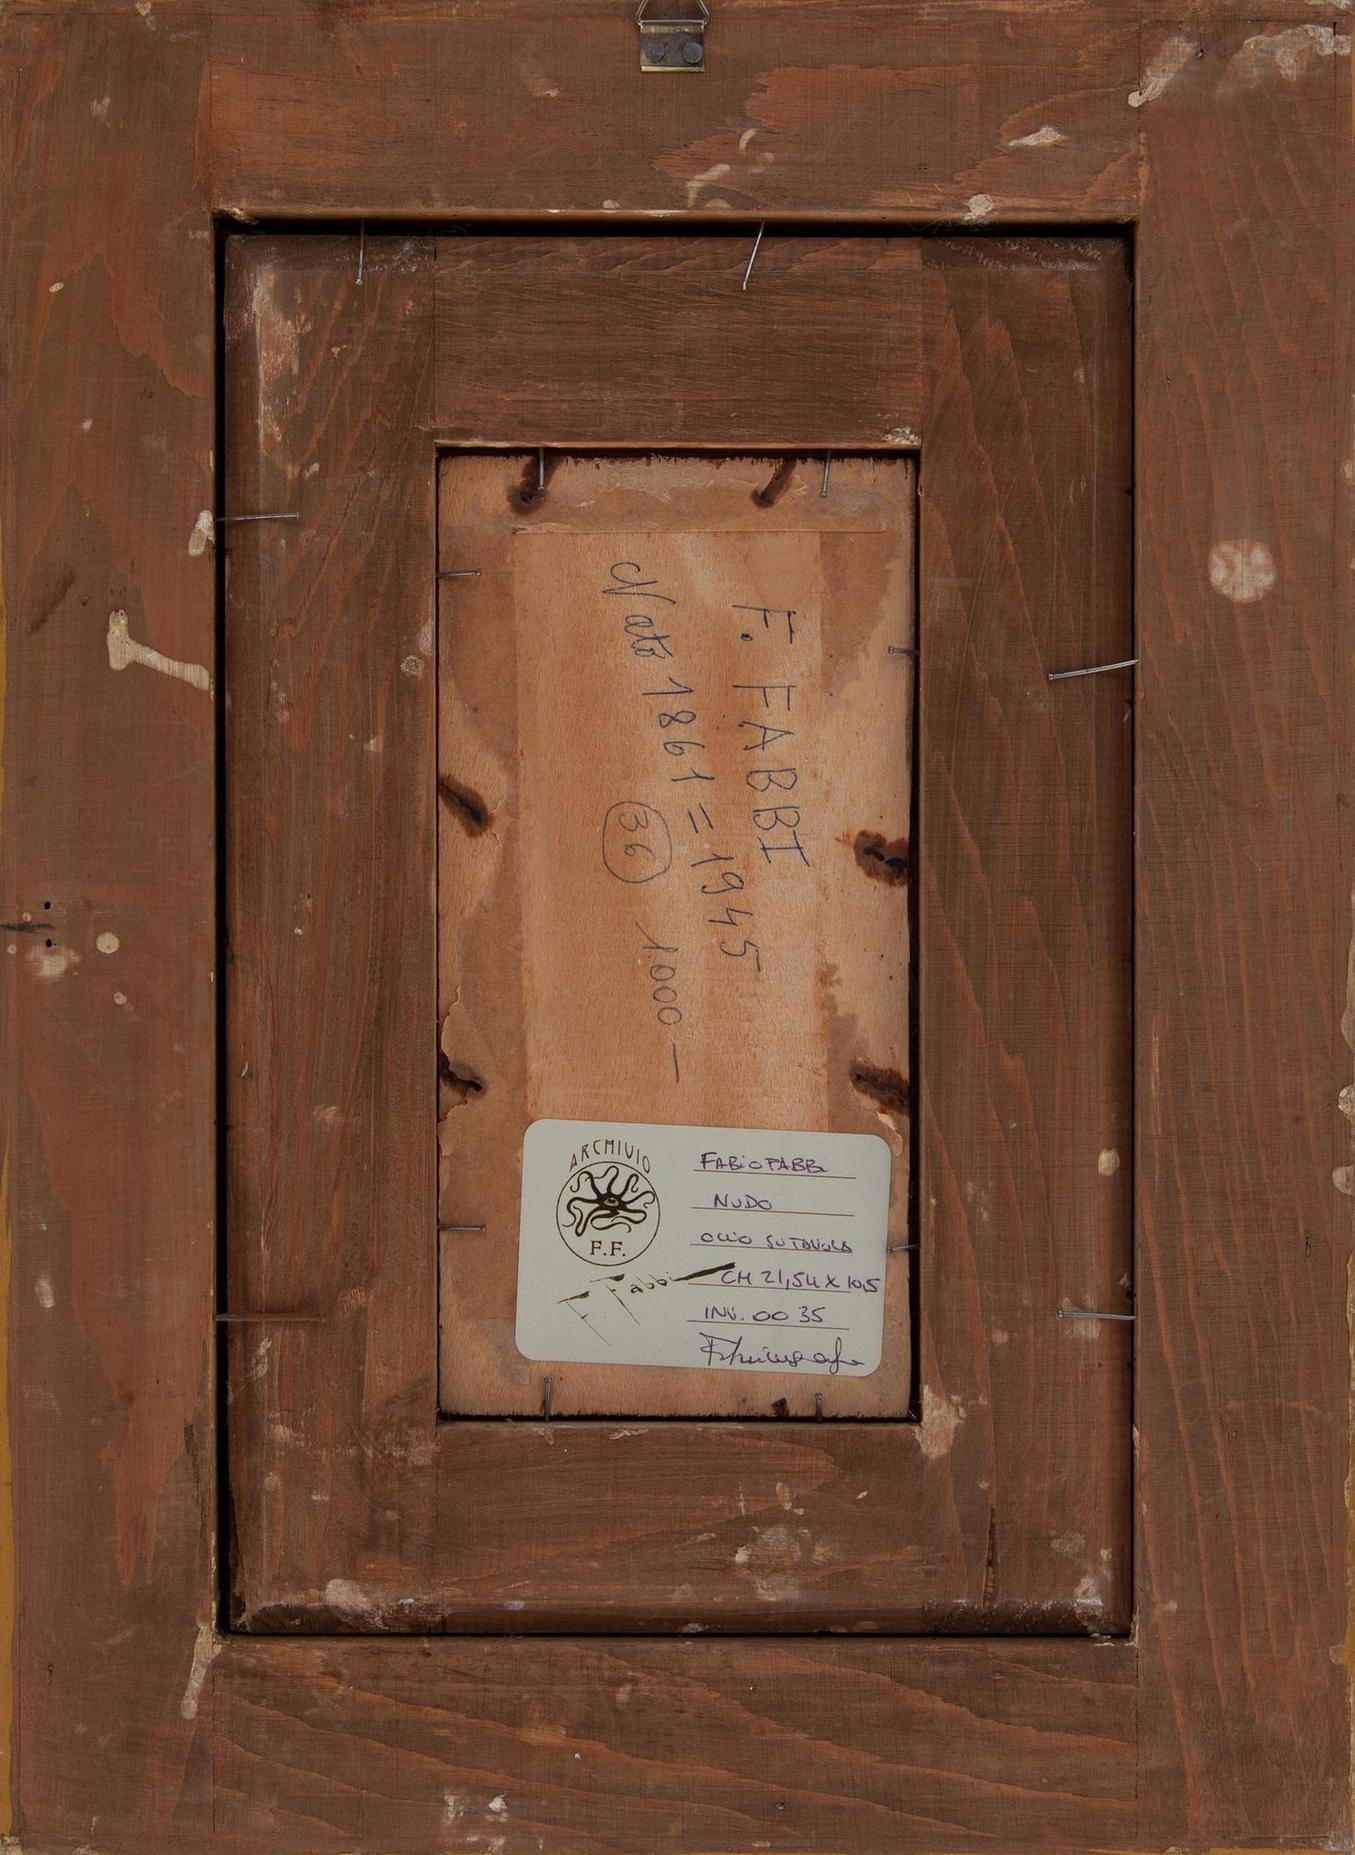 F. FABBI
Nato 1861 = 1945
36 1.000 —
ARCHIVIO
F.F.
F Fabbi
FABIO FABBI
NUDO
OLIO SU TAVOLA
CM 21,54 X 10,5
INV. 00 35